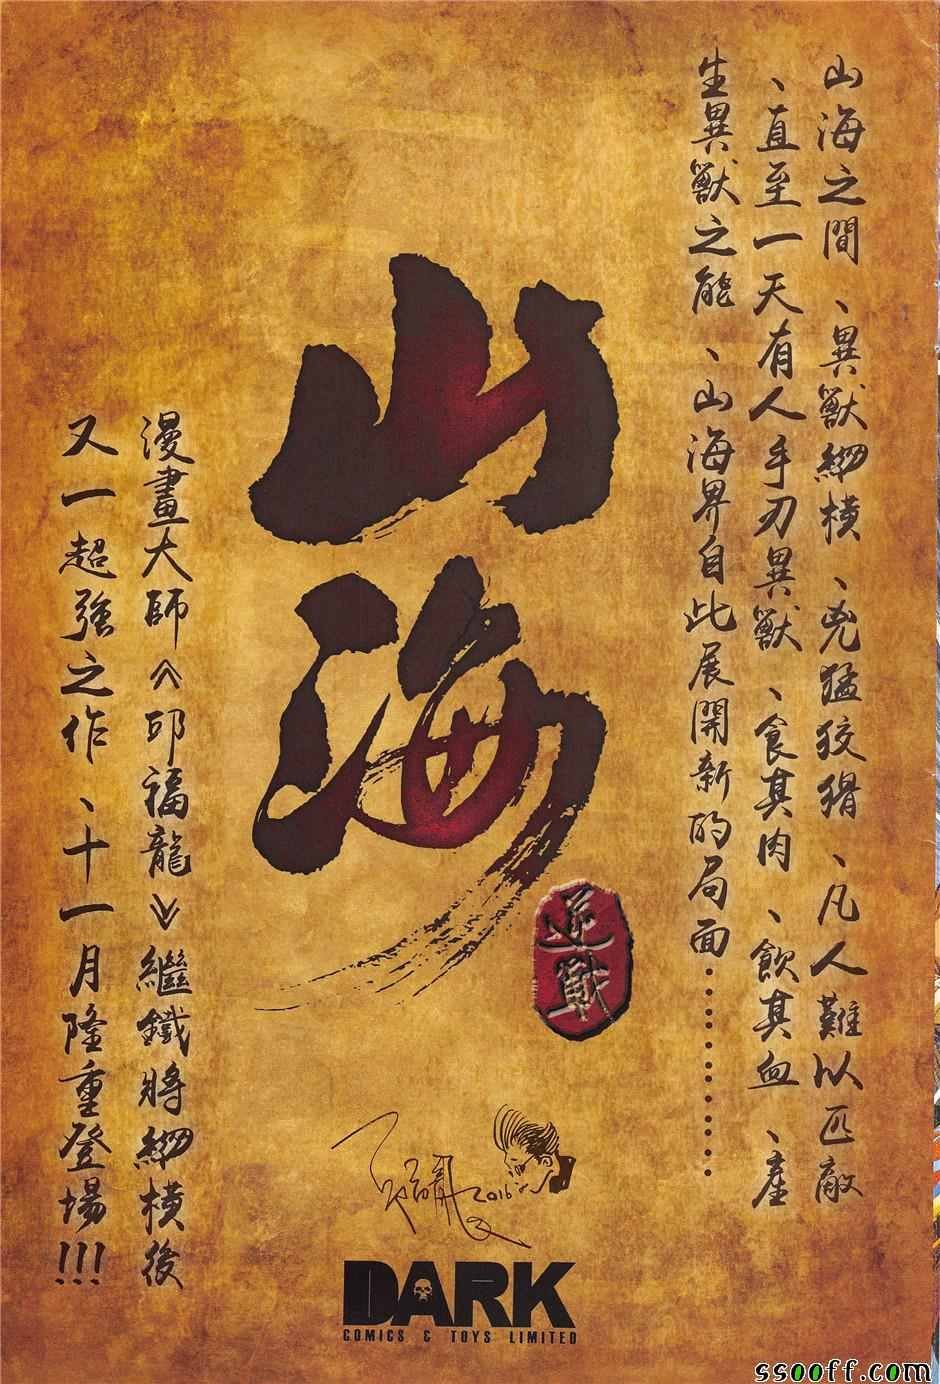 山海之間、異獸縱橫、兇猛狡猾、凡人難以匹敵
、直至一天有人手刃異獸、食其肉、飲其血、產
生異獸之能、山海界自此展開新的局面…………
山海
逆戰
漫畫大師《邱福龍》繼鐵將縱橫後
又一超強之作、十一月隆重登場!!!
2016
DARK
COMICS & TOYS LIMITED
ssooff.com